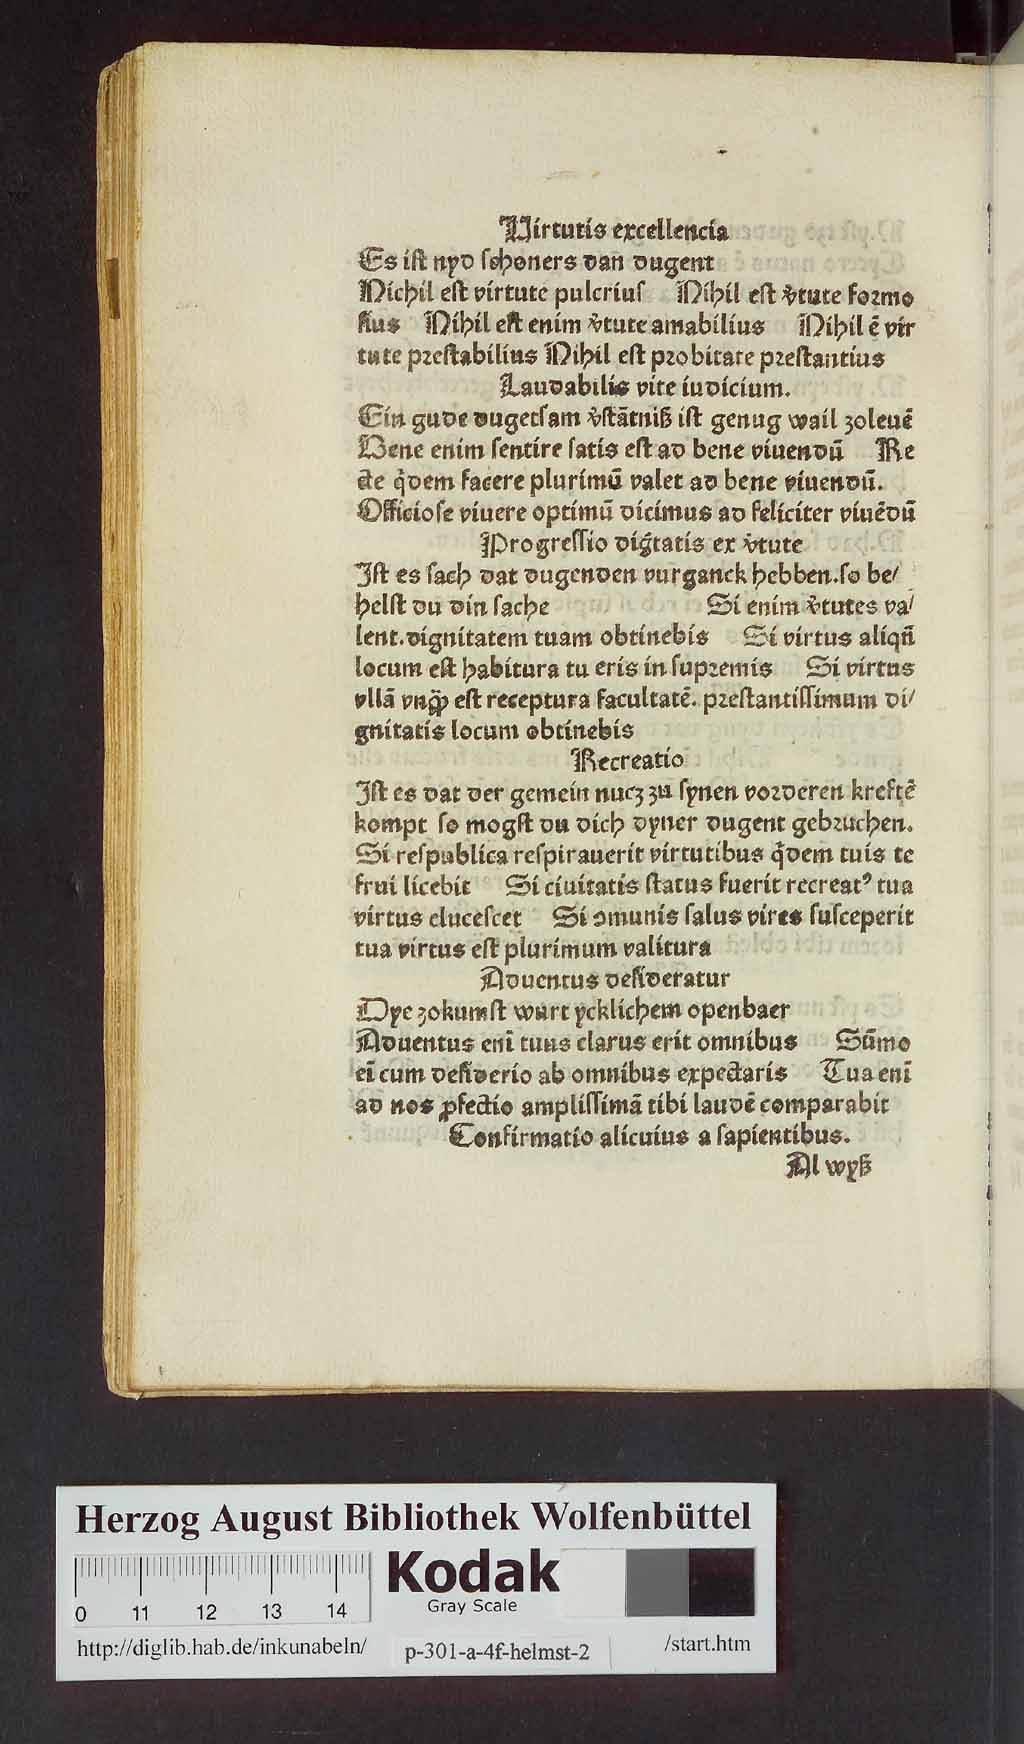 Virtutis excellencia
Es ist nyd schoners dan̄ dugent
Nichil est virtute pulcrius Nihil est v̾tute formo
sius Nihil est enim v̾tute amabilius Nihil ē vir
tute prestabilius Nihil est probitate prestantius
Laudabilis vite iudicium.
Ein gude dugetsam v̾stātniß ist genug wail zoleuē
Bene enim sentire satis est ad bene viuendū Re
cte q̇dem facere plurimū valet ad bene viuendū.
Officiose viuere optimū dicimus ad feliciter viuēdū
Progressio dig̾tatis ex v̾tute
Ist es sach dat dugenden vurganck hebben.so be/
helst du din sache Si enim v̾tutes va/
lent.dignitatem tuam obtinebis Si virtus aliqn̄
locum est habitura tu eris in supremis Si virtus
vllā vnqꝙ̄ est receptura facultatē. prestantissimum di/
gnitatis locum obtinebis
Recreatio
Ist es dat der gemein nucz zu synen vorderen kreftē
kompt so mogst du dich dyner dugent gebruchen.
Si respublica respirauerit virtutibus q̇dem tuis te
frui licebit Si ciuitatis status fuerit recreatꝰ tua
virtus elucescet Si ꝯmunis salus vires susceperit
tua virtus est plurimum valitura
Aduentus desideratur
Dye zokumst wurt ycklichem openbaer
Aduentus eni̅ tuus clarus erit omnibus Sūmo
ei̅ cum desiderio ab omnibus expectaris Tua eni̅
ad nos ꝓfectio amplissimā tibi laudē comparabit
Confirmatio alicuius a sapientibus.
Al wyß
Herzog August Bibliothek Wolfenbüttel
Kodak
Gray Scale
0 11 12 13 14
http://diglib.hab.de/inkunabeln/ p-301-a-4f-helmst-2 /start.htm